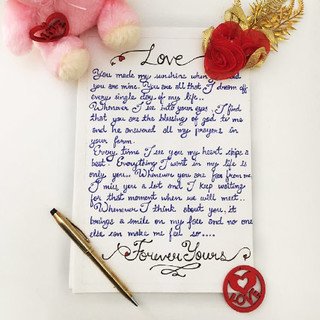 Love
You made my sunshine when
you are mine. You are all that I dream off
every single day of my life..
Whenever I see into your eyes, I find
that you are the blessing of god to me
and he answered all my prayers in
your form.
Every time I see you my heart skips a
beat. Everything I want in my life is
only you.. Whenever you are far from me
I miss you a lot and I keep waiting
for that moment when we will meet..
Whenever I think about you, it
brings a smile on my face and no one
else can make me feel so....
Forever Yours
LOVE